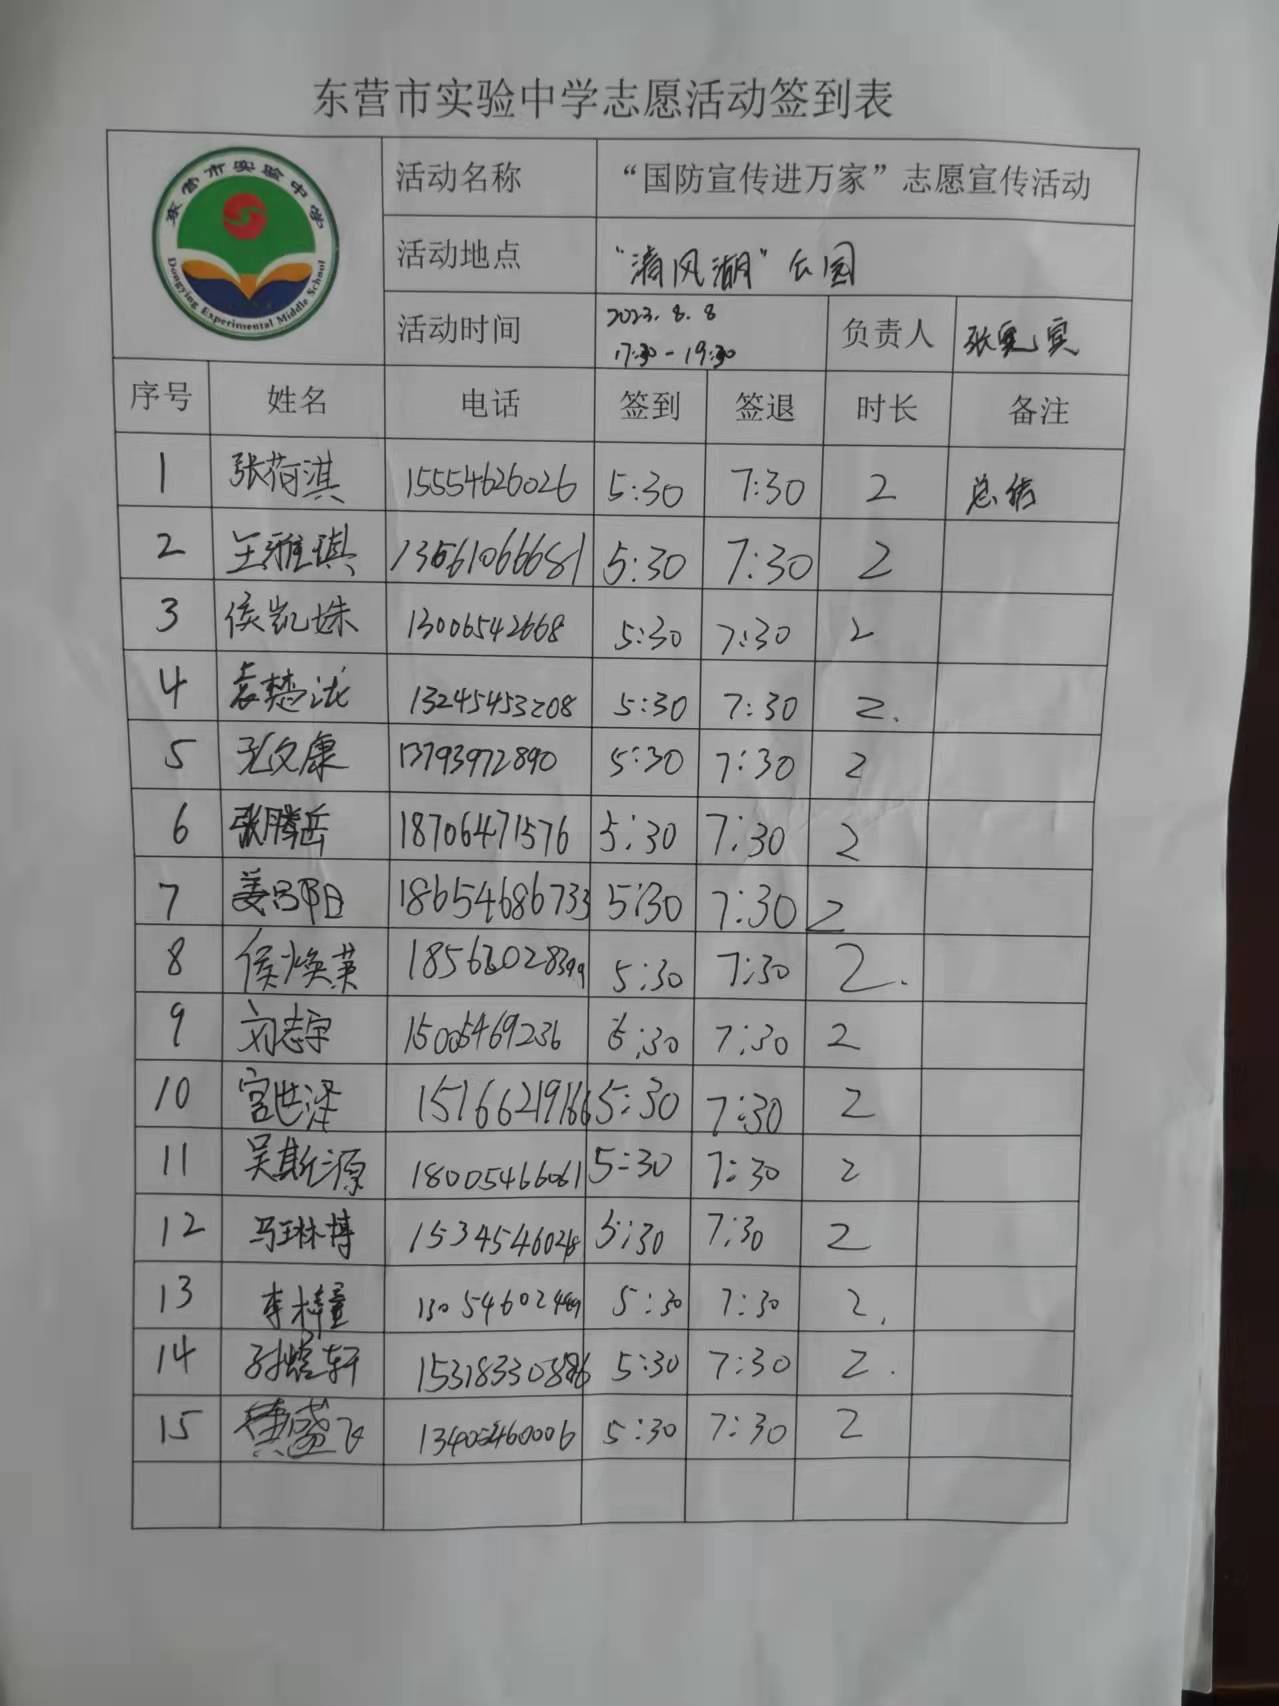 东营市实验中学志愿活动签到表
东营市实验中学
Dongying Experimental Middle School
活动名称 “国防宣传进万家”志愿宣传活动
活动地点 “清风湖”公园
活动时间 2023.8.8 17:30-19:30 负责人
序号 姓名 电话 签到 签退 时长 备注
1 张荷淇 15554626026 5:30 7:30 2 总结
2 王雅琪 13561066681 5:30 7:30 2
3 侯凯姝 13006542668 5:30 7:30 2
4 袁楚泷 13245453208 5:30 7:30 2.
5 孔文康 13793972890 5:30 7:30 2
6 张腾岳 18706471576 5:30 7:30 2
7 姜昭阳 18654686733 5:30 7:30 2
8 侯焕英 5:30 7:30 2.
9 刘志宇 15005469236 5:30 7:30 2
10 宫世泽 15166219166 5:30 7:30 2
11 吴斯源 18005466061 5:30 7:30 2
12 马琳博 5:30 7:30 2
13 李梓童 5:30 7:30 2.
14 轩 5:30 7:30 2.
15 黄盛飞 13405460006 5:30 7:30 2